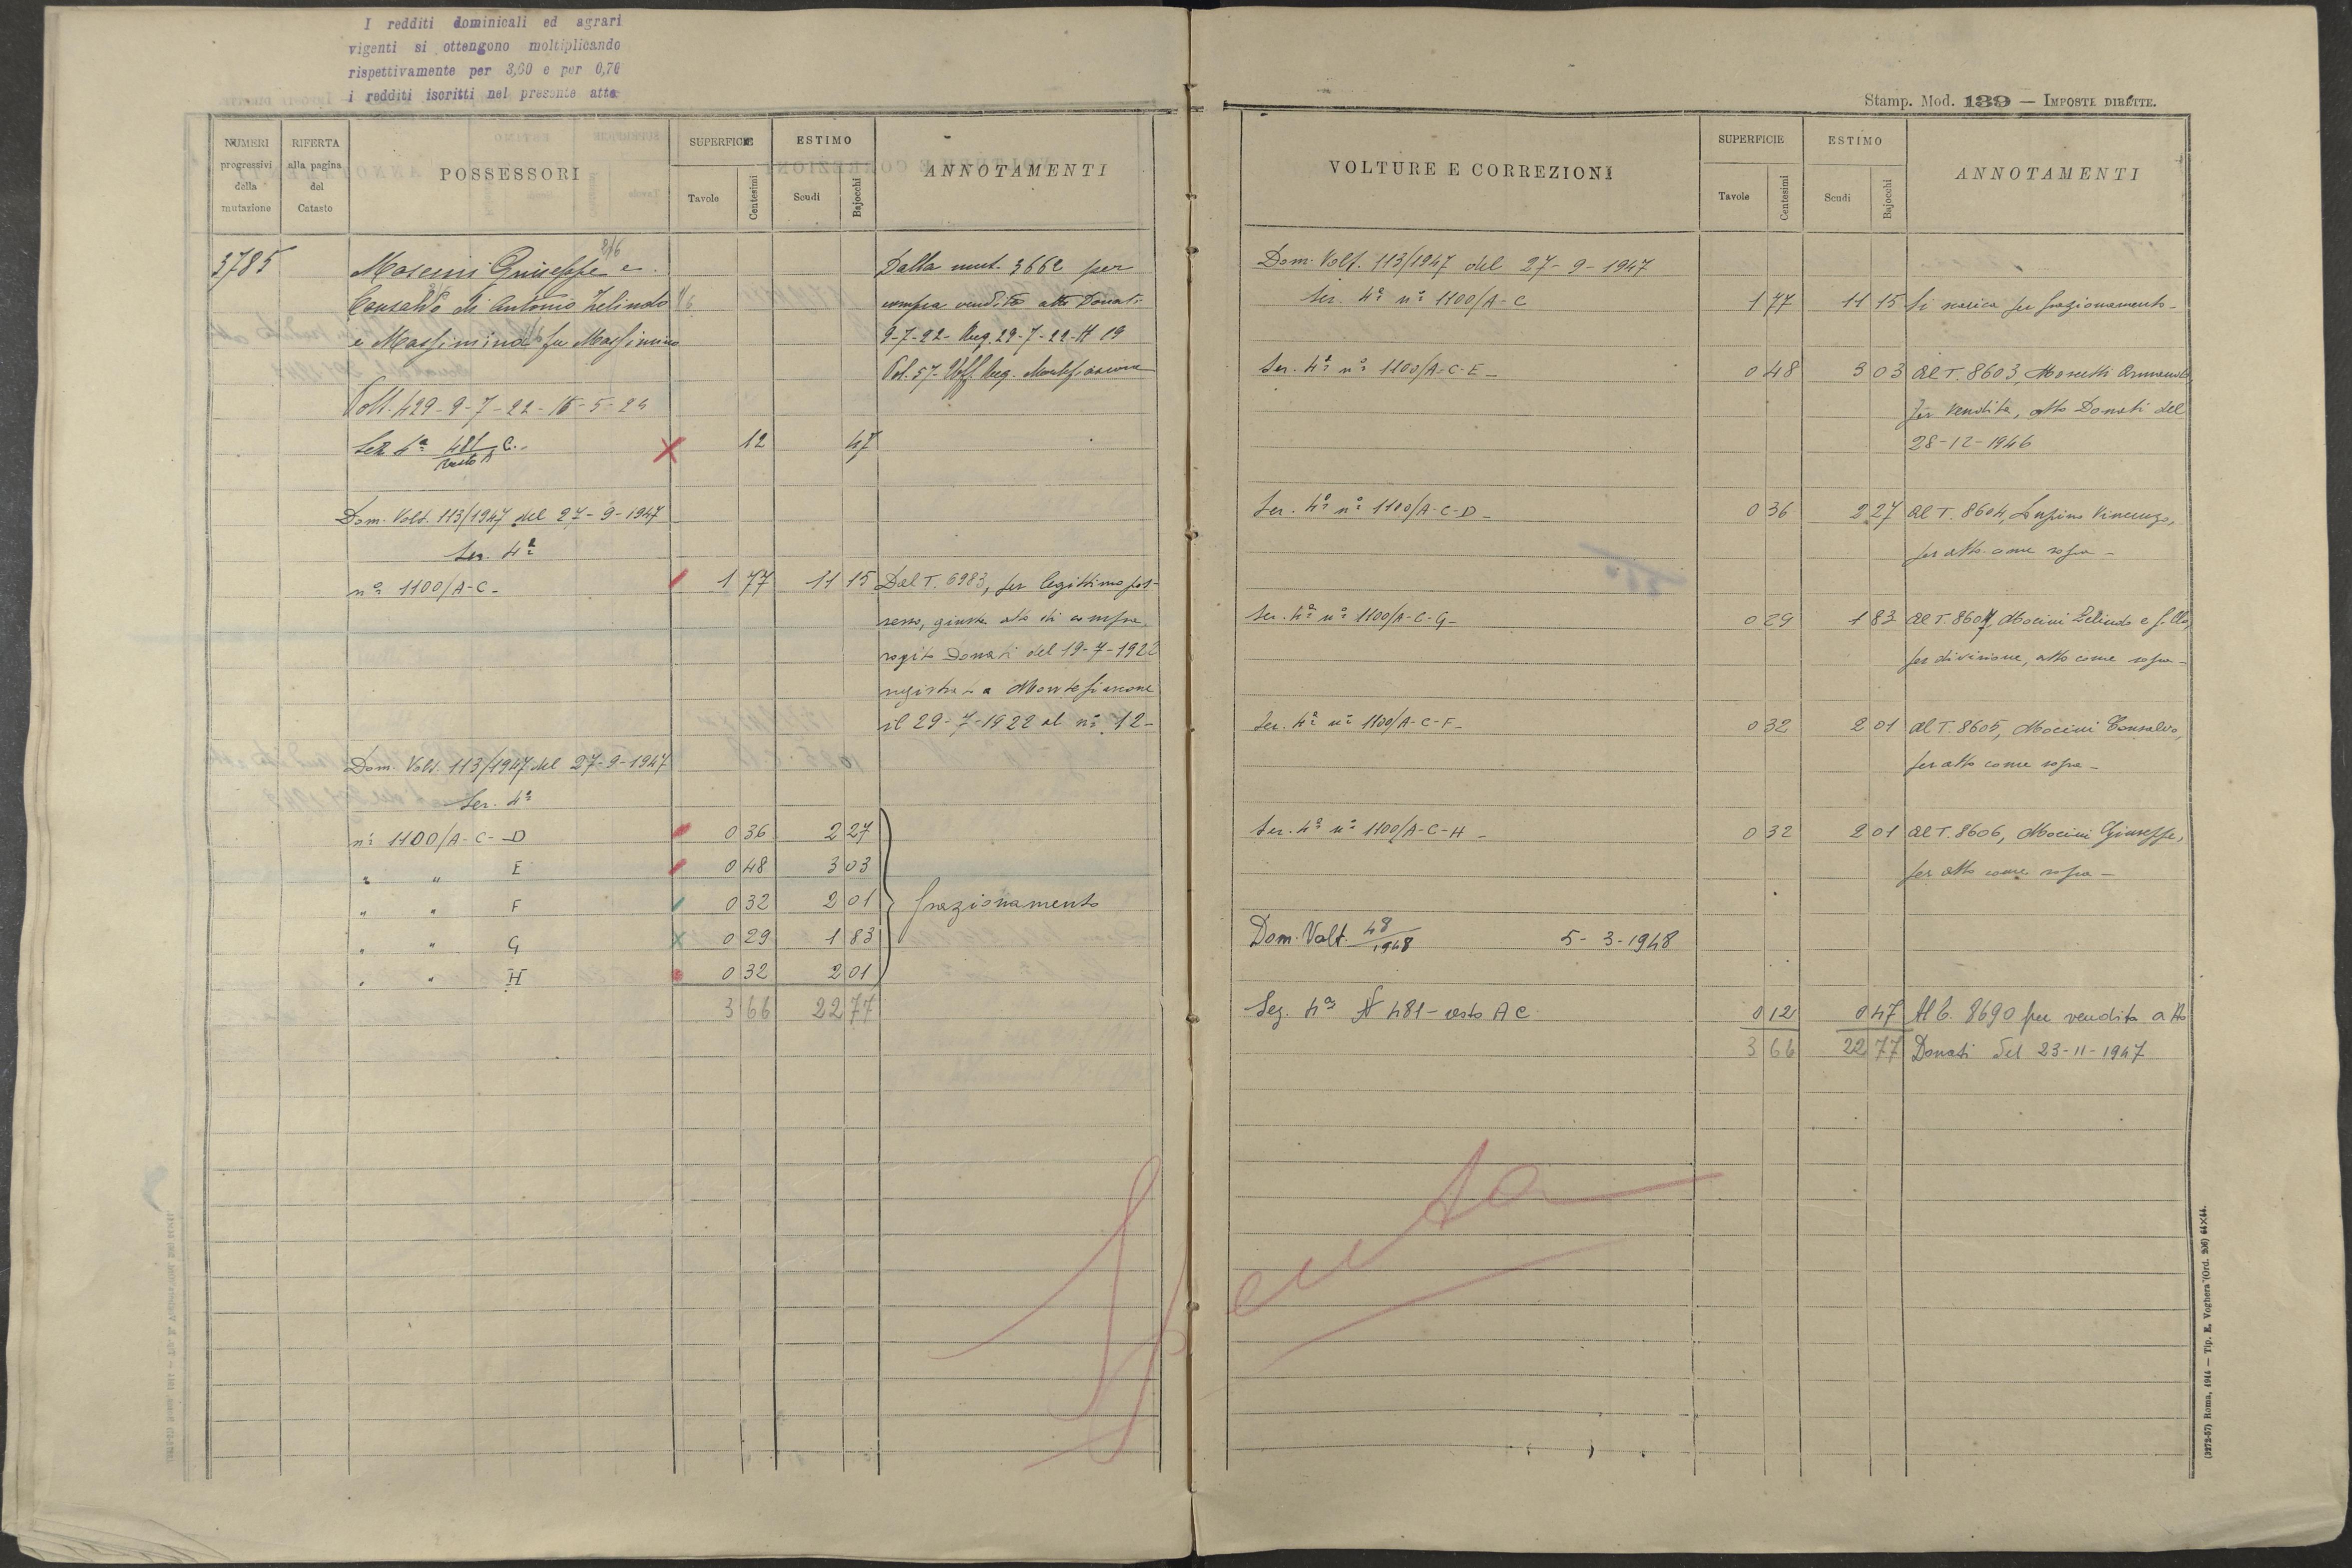 I redditi dominicali ed agrari
vigenti si ottengono moltiplicando
rispettivamente per 3,60 e per 0,70
i redditi iscritti nel presente atto
NUMERI progressivi della mutazione
RIFERTA alla pagina del Catasto
POSSESSORI
SUPERFICIE
Tavole Centesimi
ESTIMO
Scudi Bajocchi
ANNOTAMENTI
3785 Giuseppe e Dalla mut. 3662 per
di Antonio Zelindo 1/6 compra vendita atto Donati
e Massimina fu Massimino 9-7-22- Reg. 29-7-22-N 19
Vol. 57- Uff. Reg. Montefiascone
Volt. 429-9-7-22-
Sez 4ª 481/resto A C. 12 47
Dom. Volt. 113/1947 del 27-9-1947
Sez. 4ª
nº 1100/A-C- 1 77 11 15 Dal T. 6983, per legittimo pos-
sesso, giusta atto di compra
rogito Donati del 19-7-1922
registrato a Montefiascone
il 29-7-1922 al nº 12-
Dom. Volt. 113/1947 del 27-9-1947
Sez. 4ª
nº 1100/A-C--D 0 36 2 27
" " E 0 48 3 03
" " F 0 32 2 01 frazionamento
" " G 0 29 1 83
" " H 0 32 2 01
3 66 22 77
Stamp. Mod. 139 — IMPOSTE DIRETTE.
VOLTURE E CORREZIONI
SUPERFICIE
Tavole Centesimi
ESTIMO
Scudi Bajocchi
ANNOTAMENTI
Dom. Volt. 113/1947 del 27-9-1947
Sez. 4ª nº 1100/A-C 1 77 11 15 Si scarica per frazionamento-
Sez. 4ª nº 1100/A-C-E- 0 48 3 03 Al T. 8603, Armando,
per vendita, atto Donati del
28-12-1946
Sez. 4ª nº 1100/A-C-D- 0 36 2 27 Al T. 8604, Vincenzo,
per atto come sopra-
Sez. 4ª nº 1100/A-C-G- 0 29 1 83 Al T. 8607, Mocini Zelindo e
per divisione, atto come sopra-
Sez. 4ª nº 1100/A-C-F- 0 32 2 01 Al T. 8605, Mocini Consalvo,
per atto come sopra-
Sez. 4ª nº 1100/A-C-H- 0 32 2 01 Al T. 8606, Mocini Giuseppe,
per atto come sopra-
Dom. Volt. 48/1948 5-3-1948
Sez. 4ª N 481-resto A C 0 12 0 47 Al T. 8690 per vendita atto
3 66 22 77 Donati del 23-11-1947
Spenta
(3272-57) Roma, 1944 — Tip. E. Voghera (Ord. 206) 44×44.